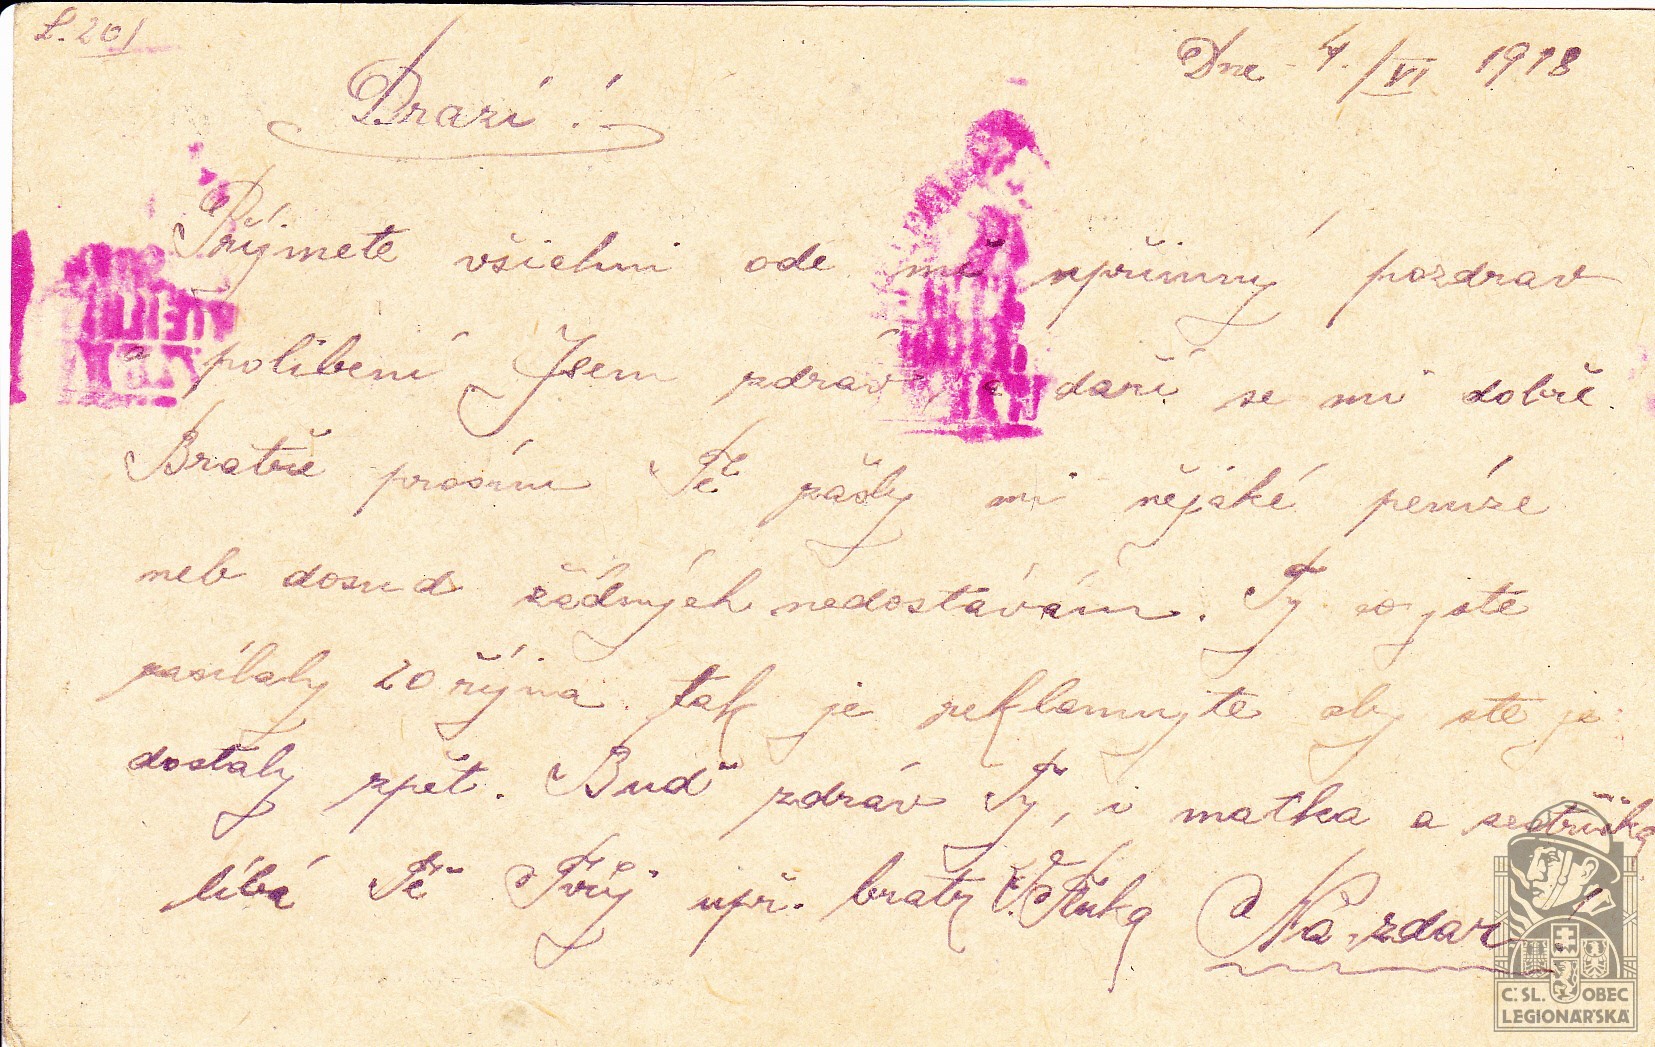 L. 201
Dne 4./VI 1918
Drazí!
Příjmete všichni ode mě upřimný pozdrav
a polibení Jsem zdráv a daří se mi dobře.
Bratře prosím Tě zašly mi nějaké peníze
neb dosud žádných nedostávám. Ty co jste
zasílaly 20 října tak je reklamujte aby ste je
dostaly zpět. Buď zdráv Ty, i matka a sestřička
líbá Tě Tvůj upř. bratr
Na-zdar!
Č.SL. OBEC
LEGIONÁŘSKÁ